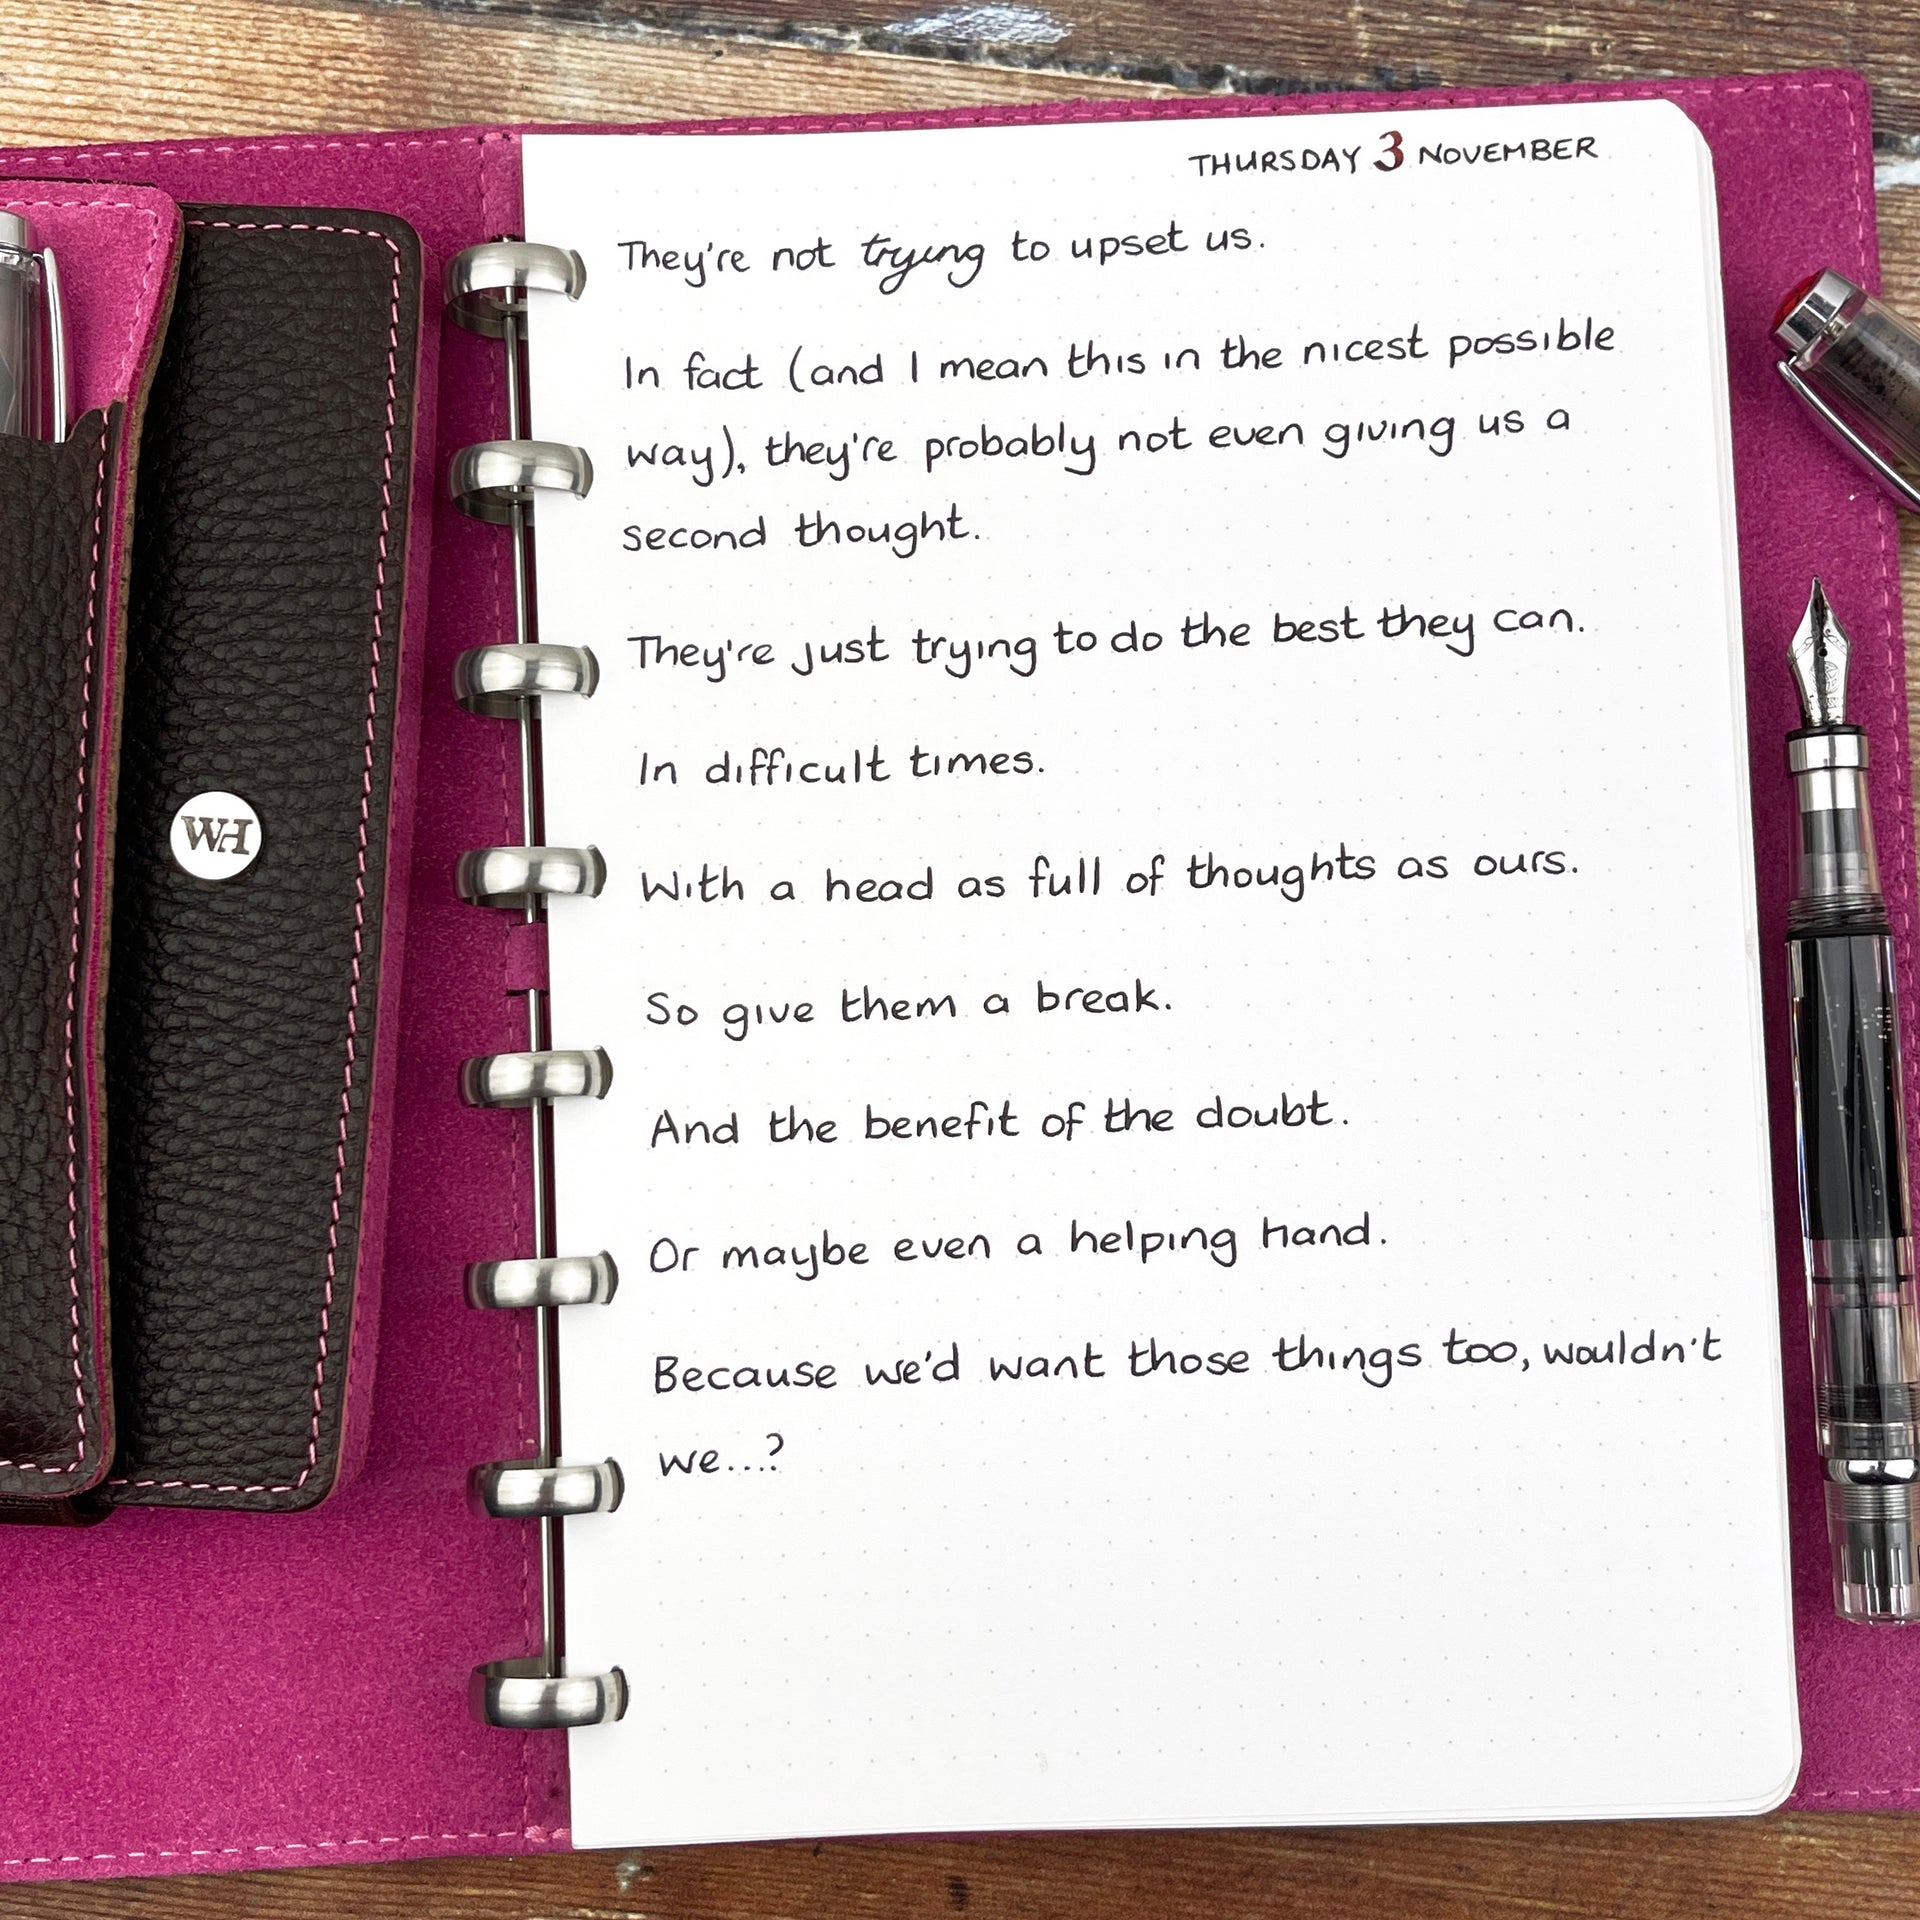 THURSDAY 3 NOVEMBER
They're not trying to upset us.
In fact (and I mean this in the nicest possible
way), they're probably not even giving us a
second thought.
They're just trying to do the best they can.
In difficult times.
With a head as full of thoughts as ours.
So give them a break.
And the benefit of the doubt.
Or maybe even a helping hand.
Because we'd want those things too, wouldn't
we...?
WH